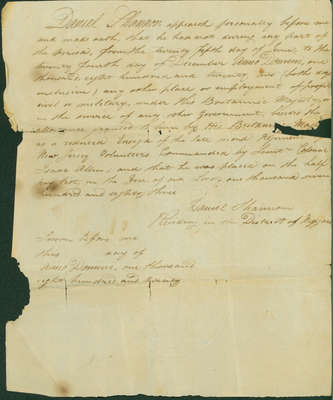 Daniel Shannon appeared personally before me
and made oath, that he has not during any part of
the period, from the twenty fifth day of June, to the
twenty fourth day of December Anno Domini, one
thousand eight hundred and twenty, (both days
inclusive) any other place or employment of profit
civil or military, under His Britannic Majesty
in the service of any other Government, besides the
allowance granted to him by His Britannic Maj
as a reduced Ensign of the late second Regiment
New Jersey Volunteers Commanded by Lieut Colonel
Isaac Allen, and that he was placed on the half
in the year of our Lord, one thousand seven
hundred and eighty three
Daniel Shannon
Residing in the District of
Sworn before me
this day of
Anno Domini, one thousand
eight hundred and twenty